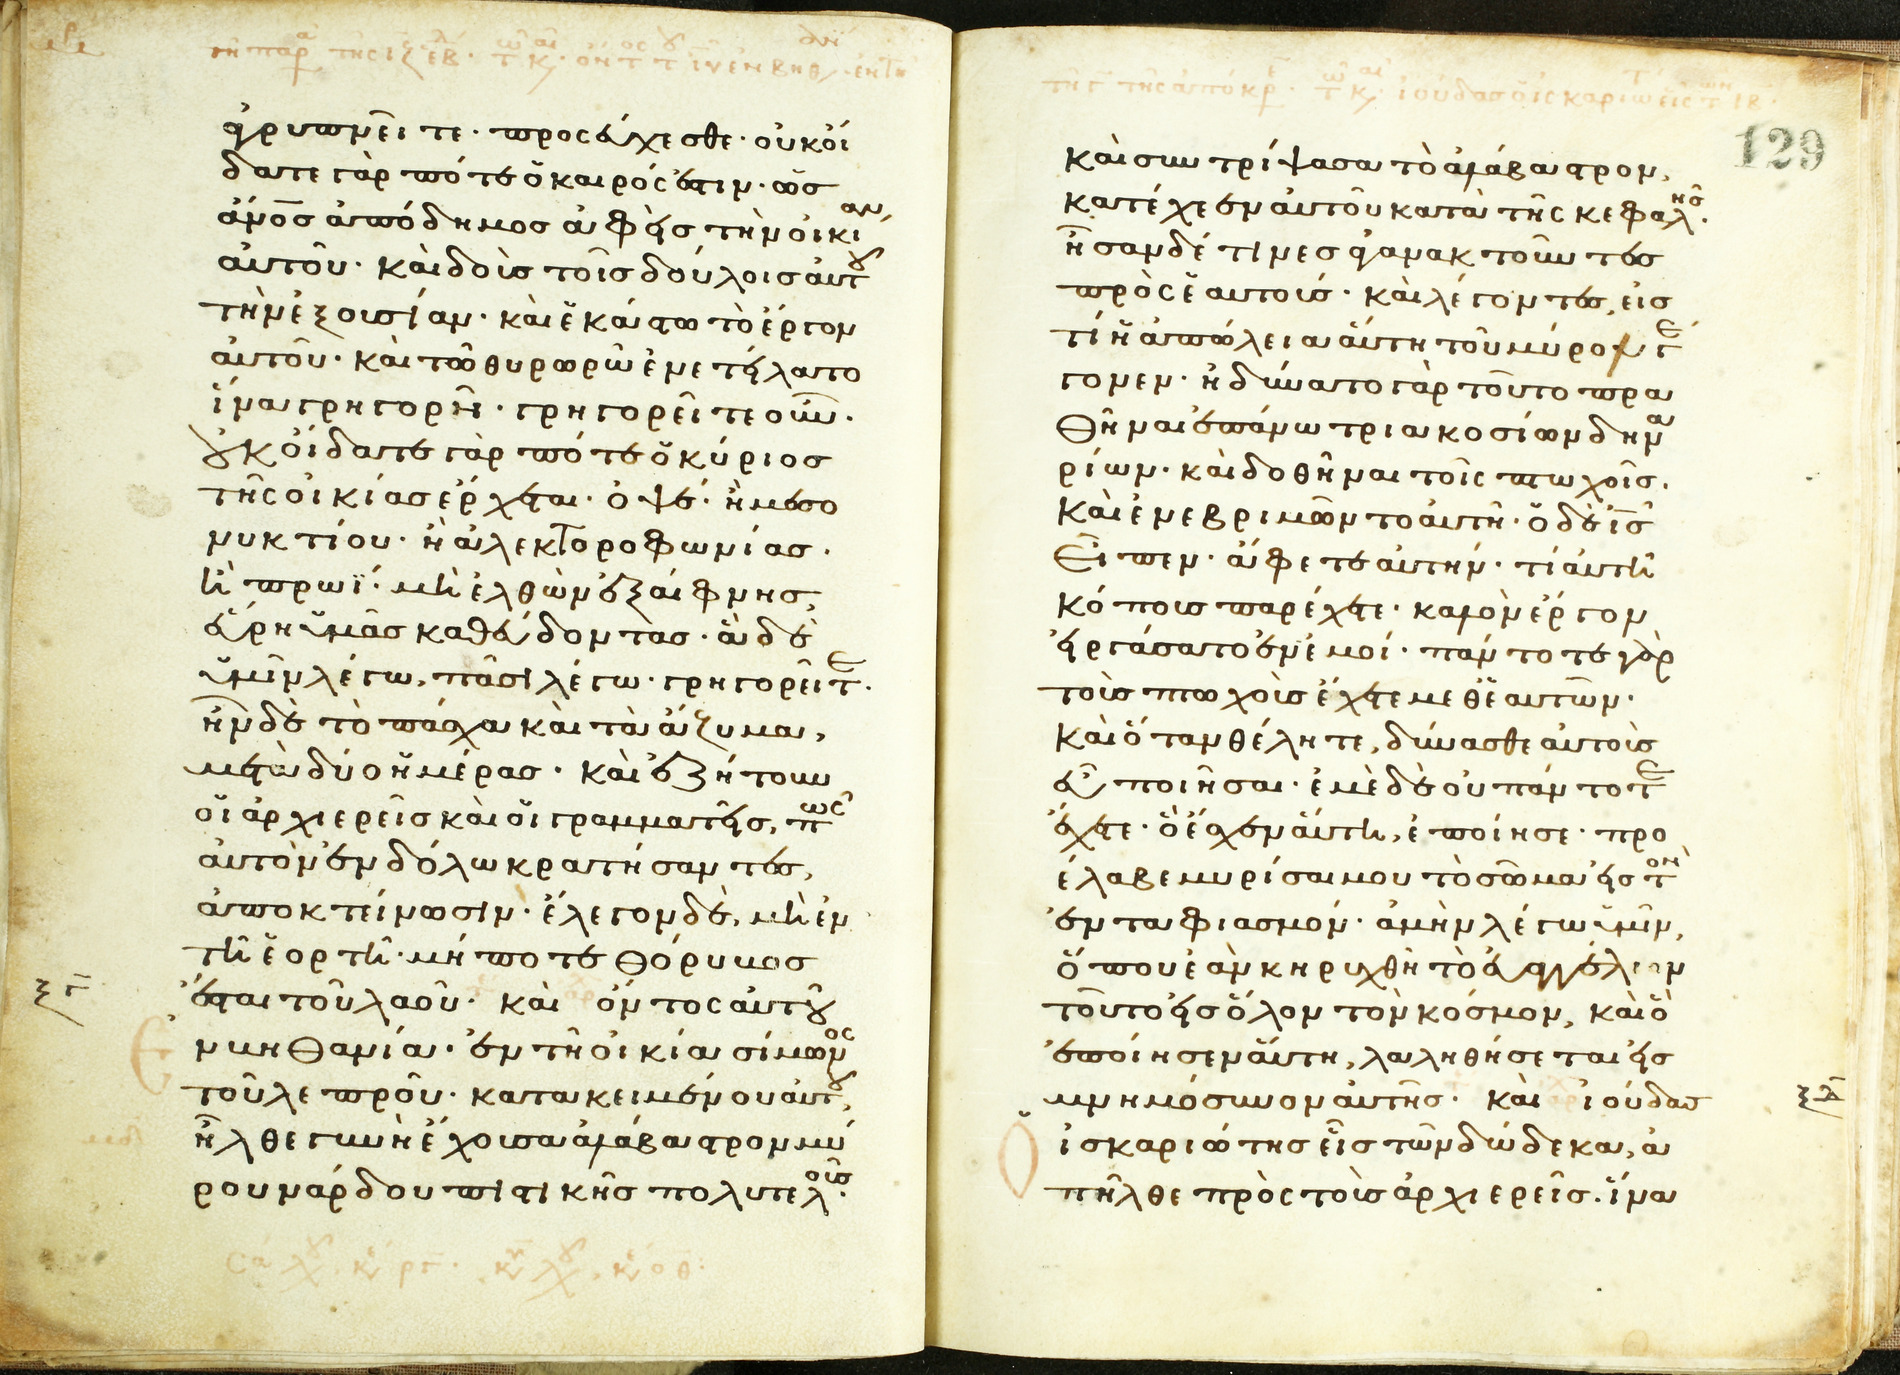 γρυπνεῖτε· προσεύχεσθε· οὐκ οἴ
δατε γὰρ πότε ὁ καιρός ἐστιν· ὡς
ἄνο̅ς ἀπόδημος ἀφεὶς τὴν οἰκίαν,
αὐτοῦ· καὶ δοὺς τοῖς δούλοις αὐτοῦ
τὴν ἐξουσίαν· καὶ ἑκάστω τὸ ἔργον
αὐτοῦ· καὶ τῶ θυρωρῶ ἐνετείλατο
ἵνα γρηγορῆ· γρηγορεῖτε οὖν·
οὐκ οἴδατε γὰρ πότε ὁ κύριος
τῆς οἰκίας ἔρχεται· ὀψέ· ἢ μεσο
νυκτίου· ἢ ἀλεκτοροφωνίας·
ἢ πρωΐ· μὴ ἐλθὼν ἐξαίφνης,
εὕρη ὑμᾶς καθεύδοντας· ἃ δὲ
ὑμῖν λέγω, πᾶσι λέγω· γρηγορεῖτε·
ἦν δὲ τὸ πάσχα καὶ τὰ ἄζυμα,
μετὰ δύο ἡμέρας· καὶ ἐζήτουν
οἱ ἀρχιερεῖς καὶ οἱ γραμματεῖς, πῶς
αὐτὸν ἐν δόλω κρατήσαντες,
ἀποκτείνωσιν· ἔλεγον δέ, μὴ ἐν
τῆ ἑορτῆ· μήποτε θόρυβος
ἔσται τοῦ λαοῦ· καὶ ὄντος αὐτοῦ
ἐν βηθανία· ἐν τῆ οἰκία σίμωνος
τοῦ λεπροῦ· κατακειμένου αὐτοῦ,
ἦλθε γυνὴ ἔχουσα ἀλάβαστρον μύ
ρου νάρδου πιστικῆς πολυτελοῦς·
129
καὶ συντρίψασα τὸ ἀλάβαστρον,
κατέχεεν αὐτοῦ κατὰ τῆς κεφαλῆς·
ἦσαν δέ τινες ἀγανακτοῦντες
πρὸς ἑαυτούς· καὶ λέγοντες, εἰς
τί ἡ ἀπώλεια αὕτη τοῦ μύρου γέ
γονεν· ἠδύνατο γὰρ τοῦτο πρα
θῆναι ἐπάνω τριακοσίων δηνα
ρίων· καὶ δοθῆναι τοῖς πτωχοῖς·
καὶ ἐνεβριμῶντο αὐτῆ· ὁ δὲ ι̅ς̅
εἶπεν· ἄφετε αὐτήν· τί αὐτῆ
κόπους παρέχετε· καλὸν ἔργον
εἰργάσατο ἐν ἐμοί· πάντοτε γὰρ
τοὺς πτωχοὺς ἔχετε μεθ ἑαυτῶν·
καὶ ὅταν θέλητε, δύνασθε αὐτοὺς
εὖ ποιῆσαι· ἐμὲ δὲ οὐ πάντοτε
ἔχετε· ὃ ἔσχεν αὕτη, ἐποίησε· προ
έλαβε μυρίσαι μου τὸ σῶμα εἰς τὸν
ἐνταφιασμόν· ἀμὴν λέγω ὑμῖν,
ὅπου ἐὰν κηρυχθῆ τὸ εὐαγγέλιον
τοῦτο εἰς ὅλον τὸν κόσμον, καὶ ὃ
ἐποίησεν αὕτη, λαληθήσεται εἰς
μνημόσυνον αὐτῆς· καὶ ἰούδας
ὁ ἰσκαριώτης εἷς τῶν δώδεκα, ἀ
πῆλθε πρὸς τοὺς ἀρχιερεῖς· ἵνα